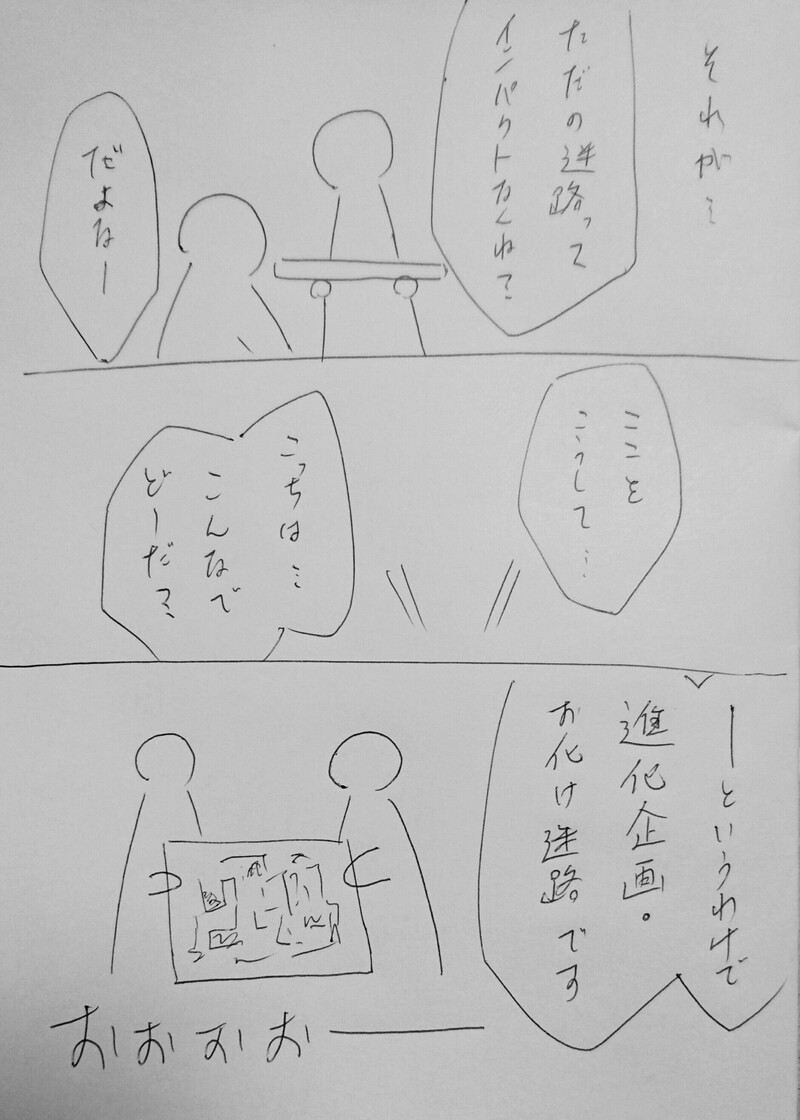 それが…
ただの迷路って
インパクトなくね?
だよなー
ここを
こうして…
こっちは…
こんなで
どーだ?
―というわけで
進化企画。
お化け迷路です
おおおお―